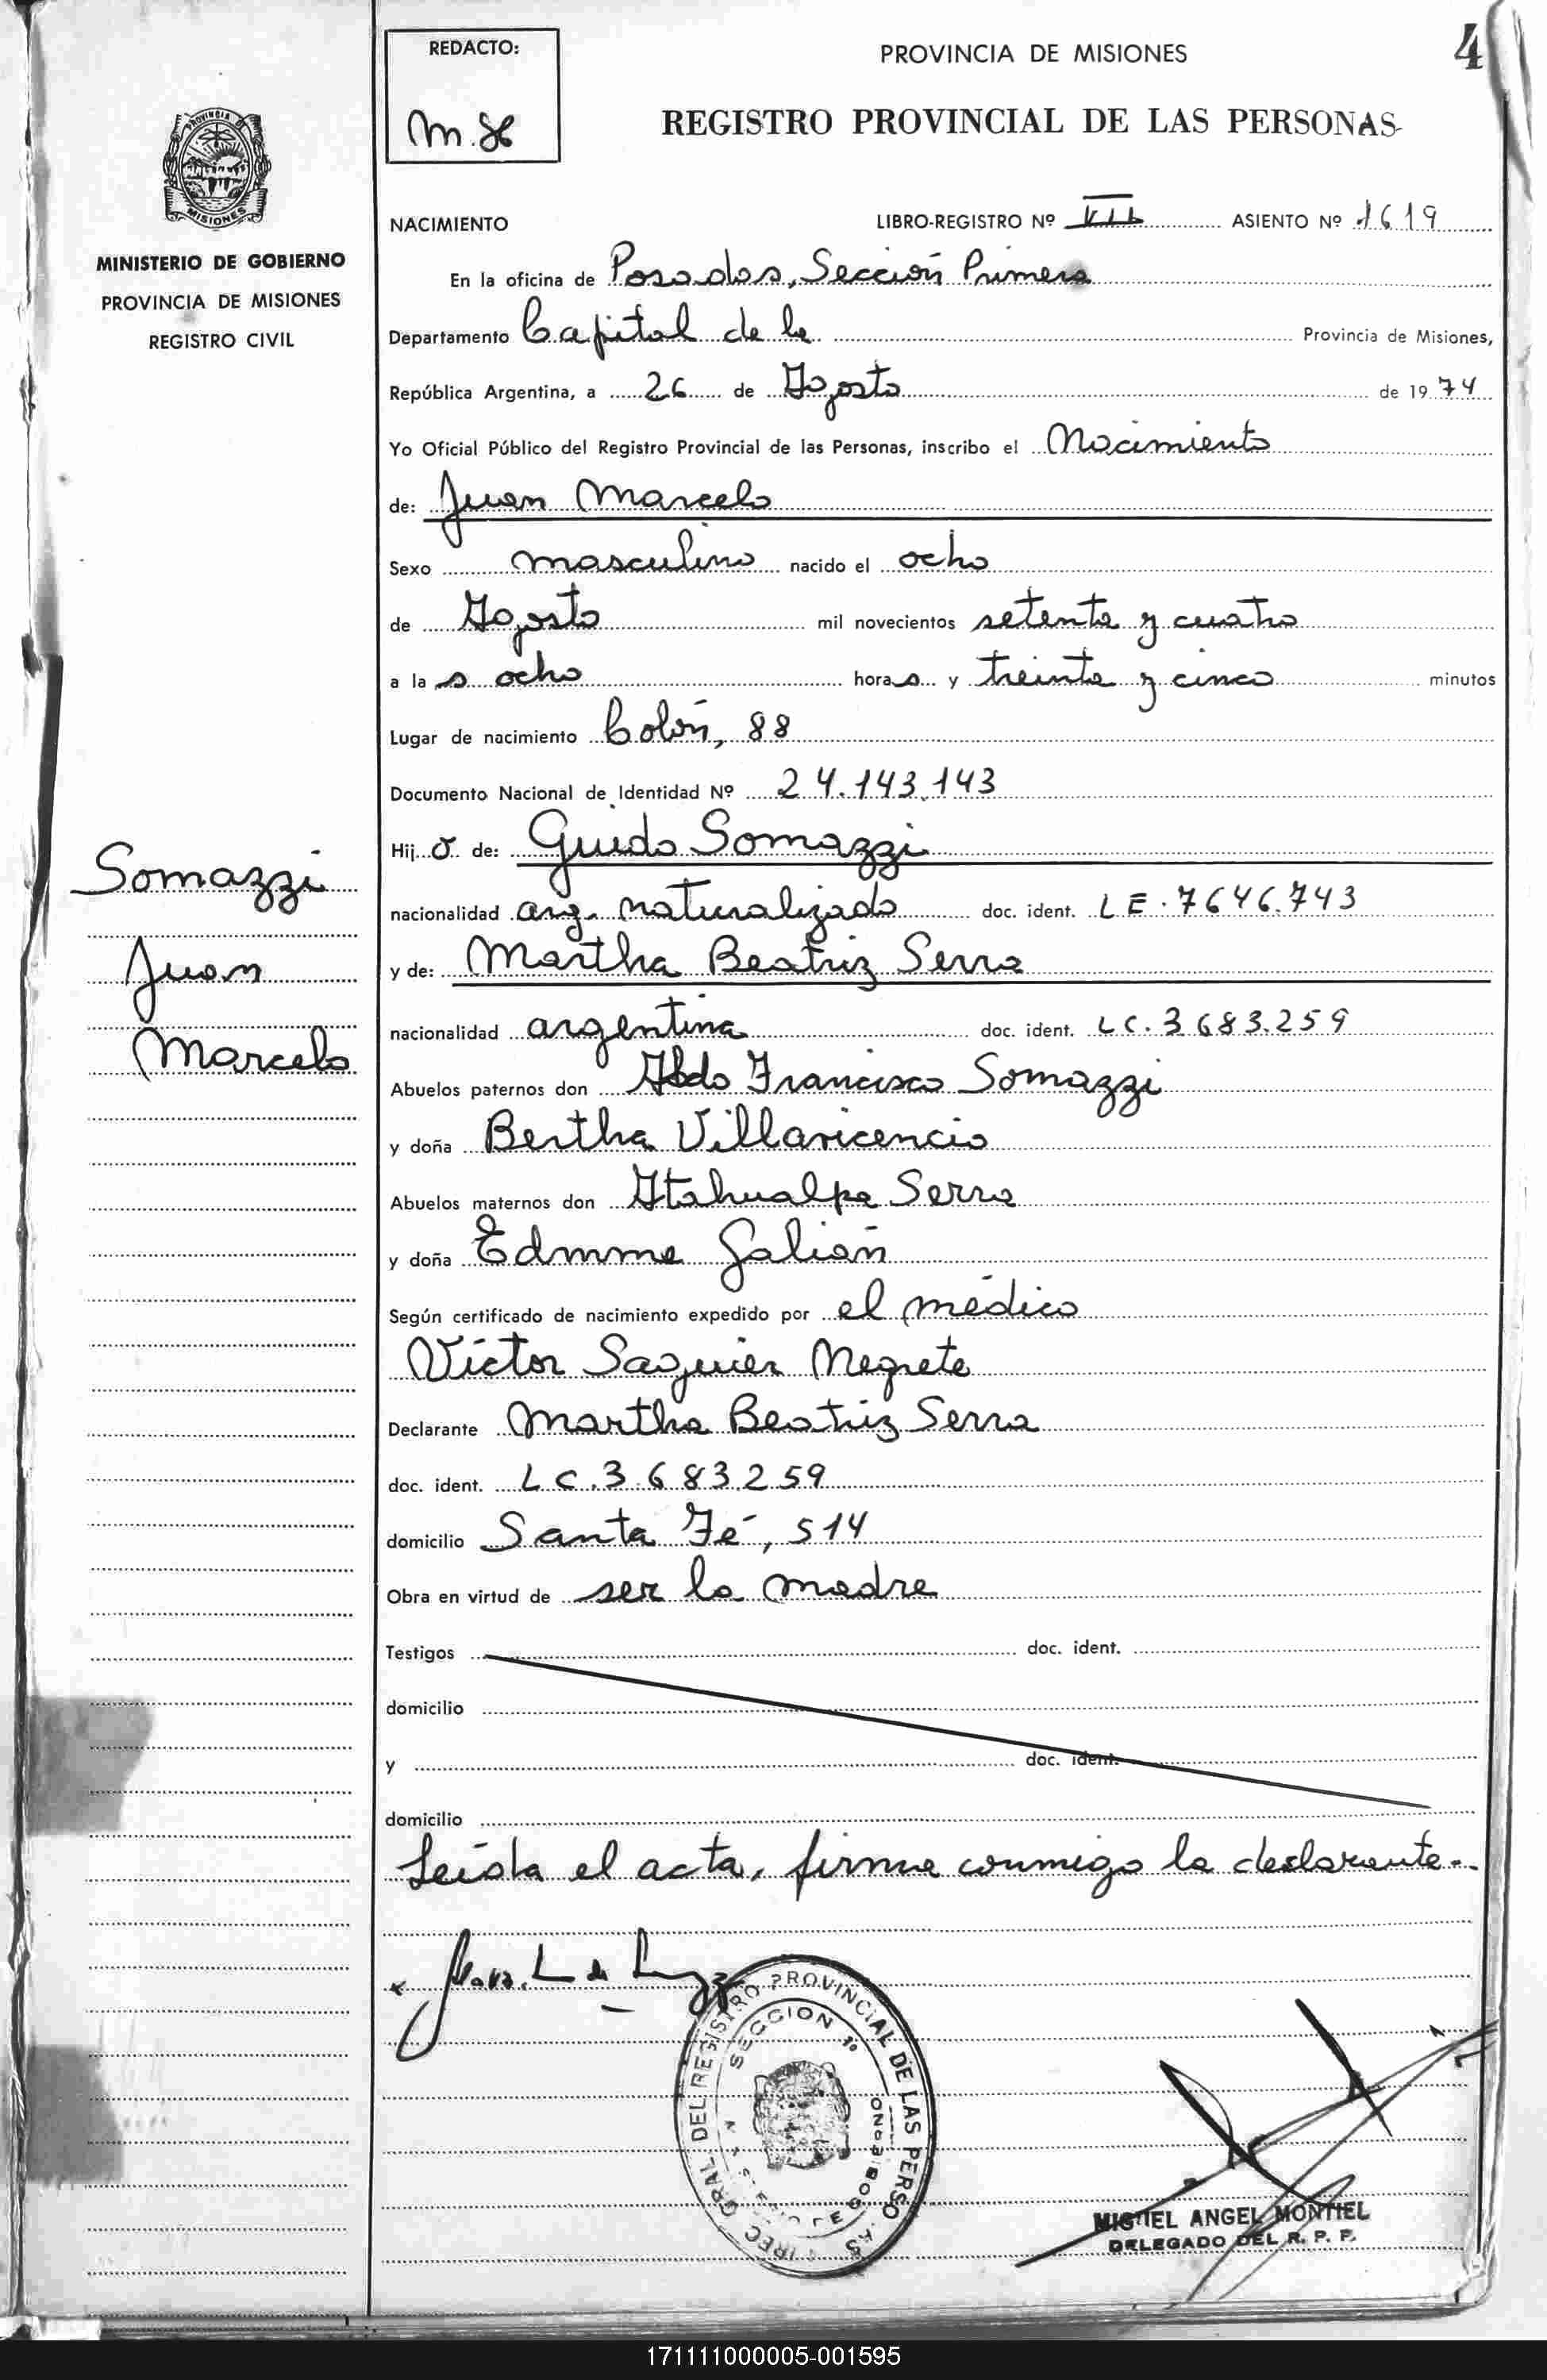 REDACTO:
PROVINCIA DE MISIONES
4
M.
REGISTRO PROVINCIAL DE LAS PERSONAS
PROVINCIA
MISIONES
MINISTERIO DE GOBIERNO
PROVINCIA DE MISIONES
REGISTRO CIVIL
NACIMIENTO LIBRO-REGISTRO Nº VII ASIENTO Nº 1619
En la oficina de Posadas, Sección Primera
Departamento Capital de la Provincia de Misiones,
República Argentina, a 26 de Agosto de 1974
Yo Oficial Público del Registro Provincial de las Personas, inscribo el Nacimiento
de: Juan Marcelo
Sexo masculino nacido el ocho
de Agosto mil novecientos setenta y cuatro
a las ocho horas y treinta y cinco minutos
Lugar de nacimiento Colón, 88
Documento Nacional de Identidad Nº 24.143.143
Hijo de: Guido Somazzi
Somazzi
nacionalidad arg. naturalizado doc. ident. LE. 7646.743
Juan
y de: Martha Beatriz Serra
nacionalidad argentina doc. ident. LC. 3683.259
Marcelo
Abuelos paternos don Aldo Francisco Somazzi
y doña Bertha Villavicencio
Abuelos maternos don Atahualpa Serra
y doña Edmme Galian
Según certificado de nacimiento expedido por el médico
Victor Saguier Negrete
Declarante Martha Beatriz Serra
doc. ident. LC. 3683.259
domicilio Santa Fé, 514
Obra en virtud de ser la madre
Testigos doc. ident.
domicilio
y doc. ident.
domicilio
Leída el acta, firma conmigo la declarante.
GRAL DEL REGISTRO PROVINCIAL DE LAS PERSONAS
SECCION 1º
MIGUEL ANGEL MONTIEL
DELEGADO DEL R. P. P.
171111000005-001595